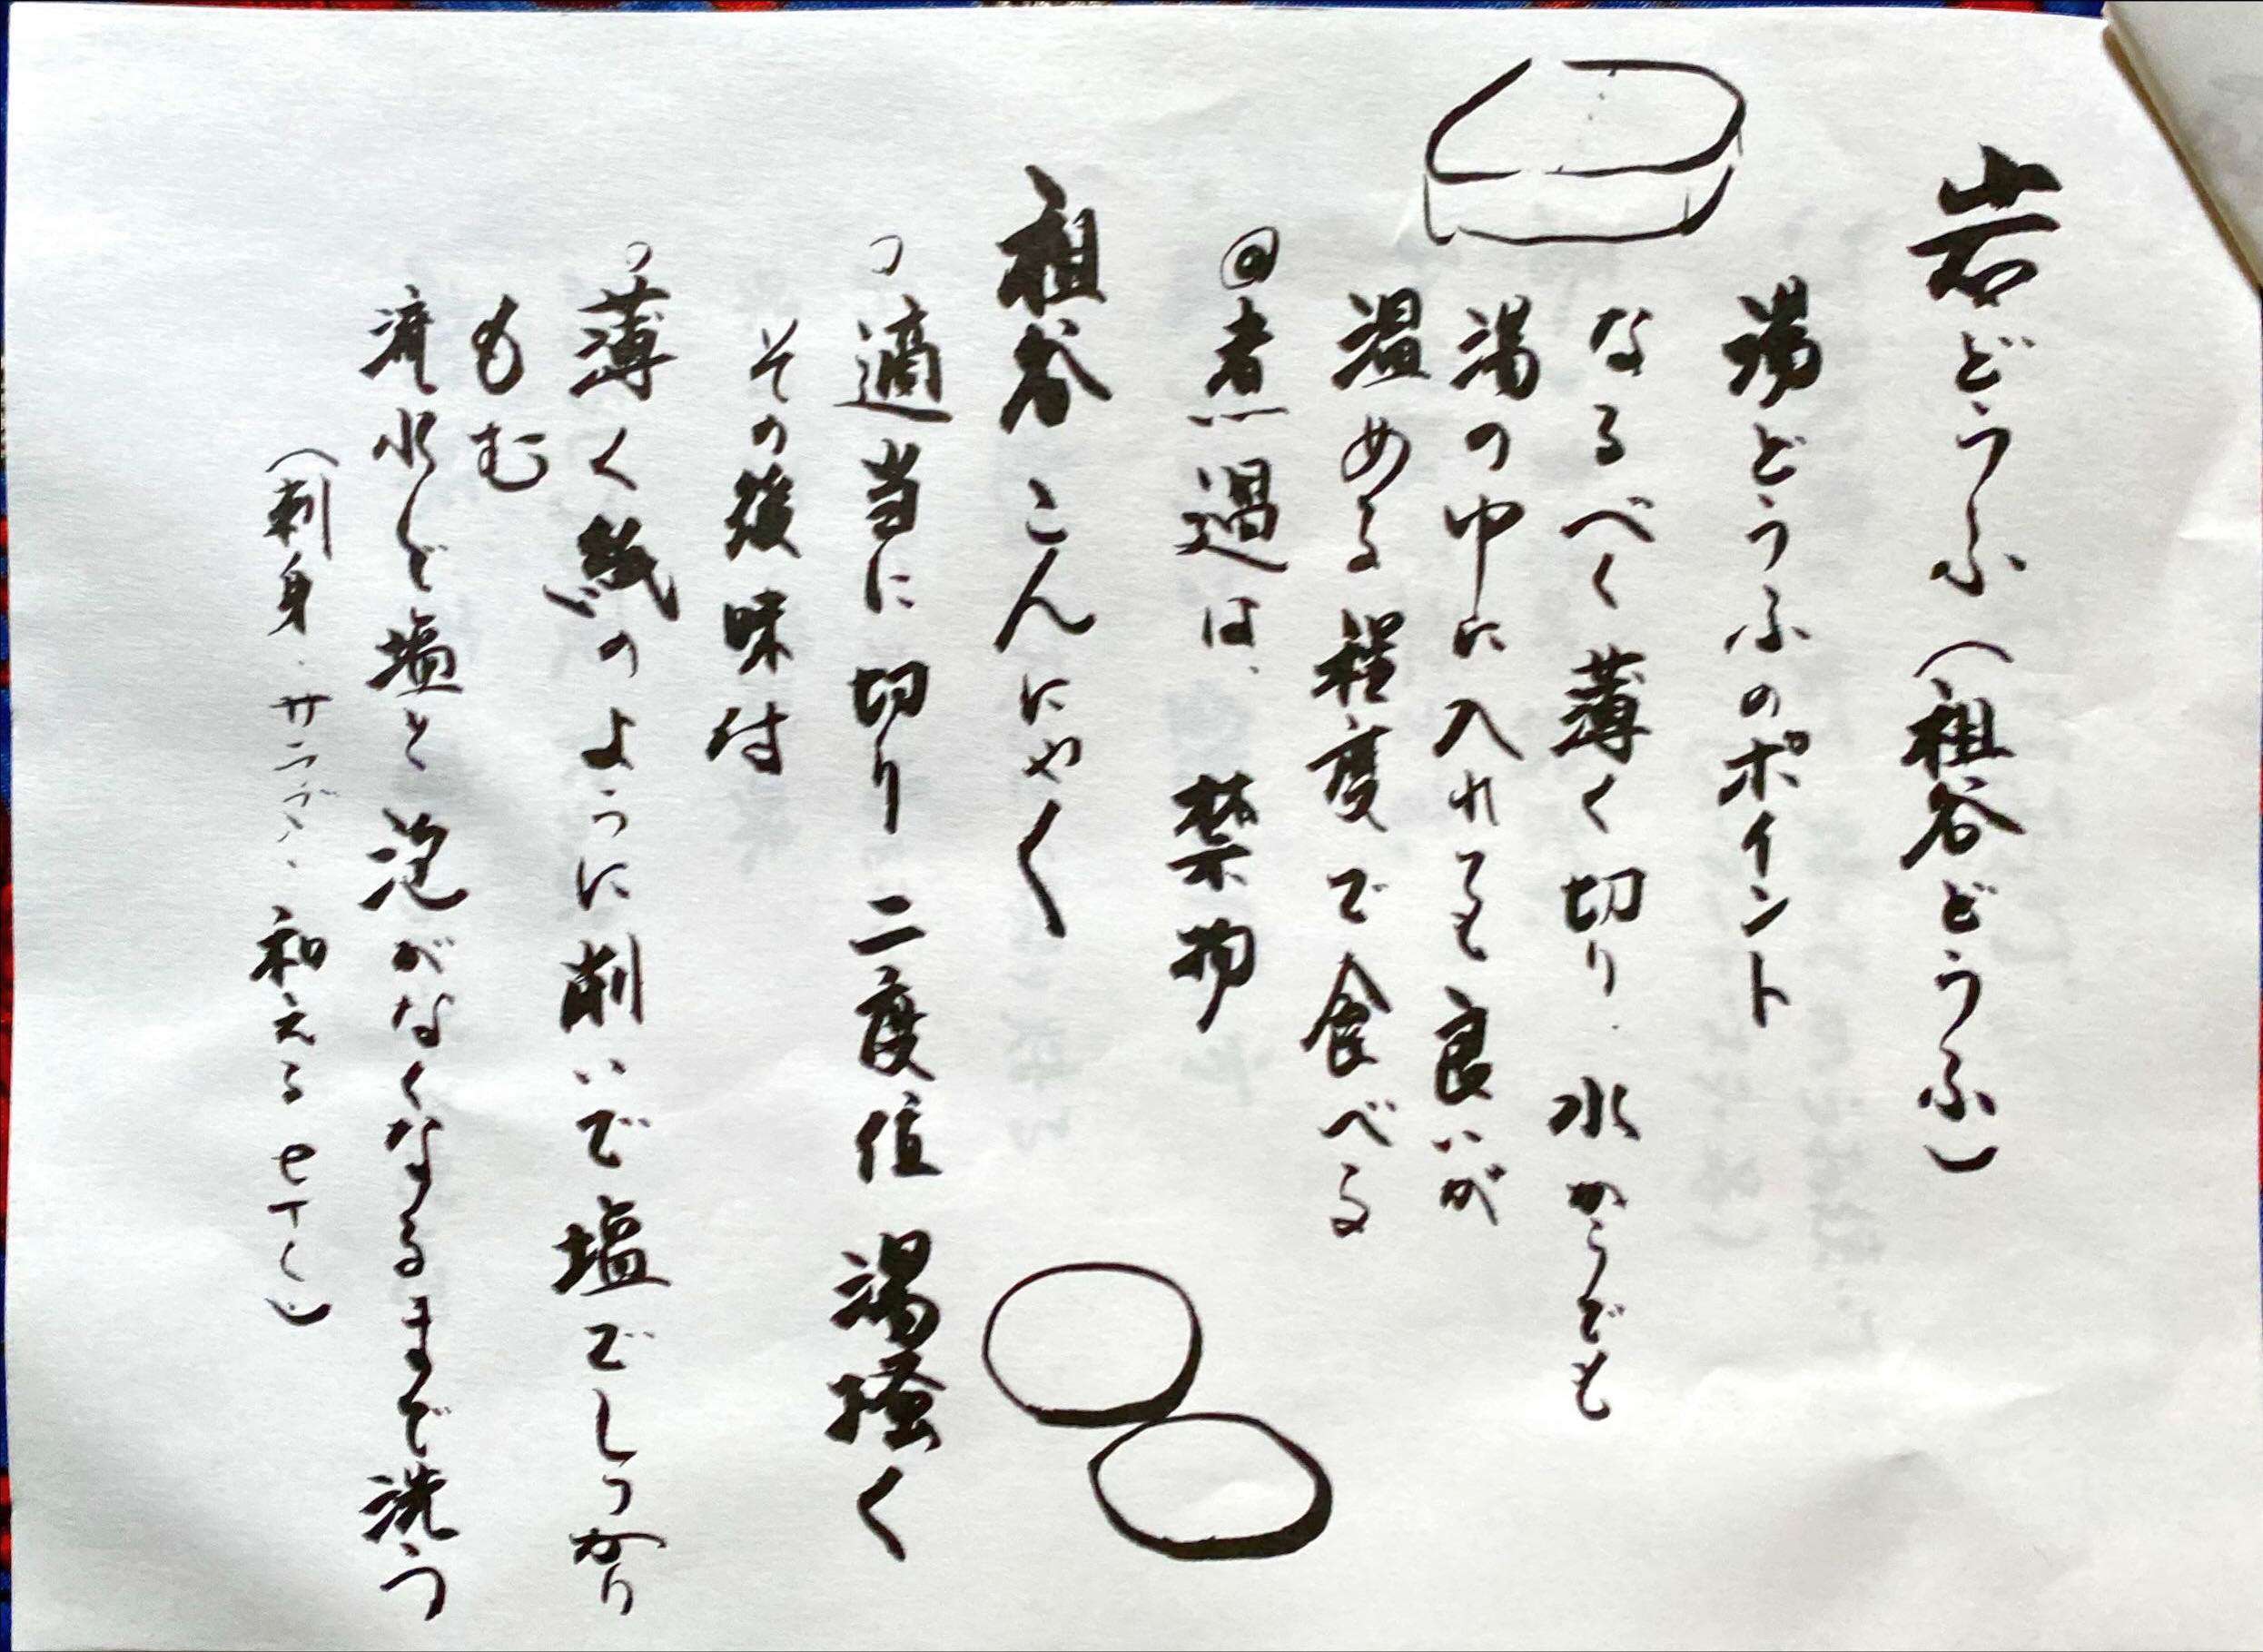 岩どうふ(祖谷どうふ)
湯どうふのポイント
なるべく薄く切り、水からでも
湯の中に入れても良いが
温める程度で食べる
◎煮過は、禁物
祖谷こんにゃく
○適当に切り二度位湯掻く
その後味付
○薄く紙のように削いで塩でしっかり
もむ
流水しど塩と泡がなくなるまで洗う
(刺身、サラダ、、和えるeTc)